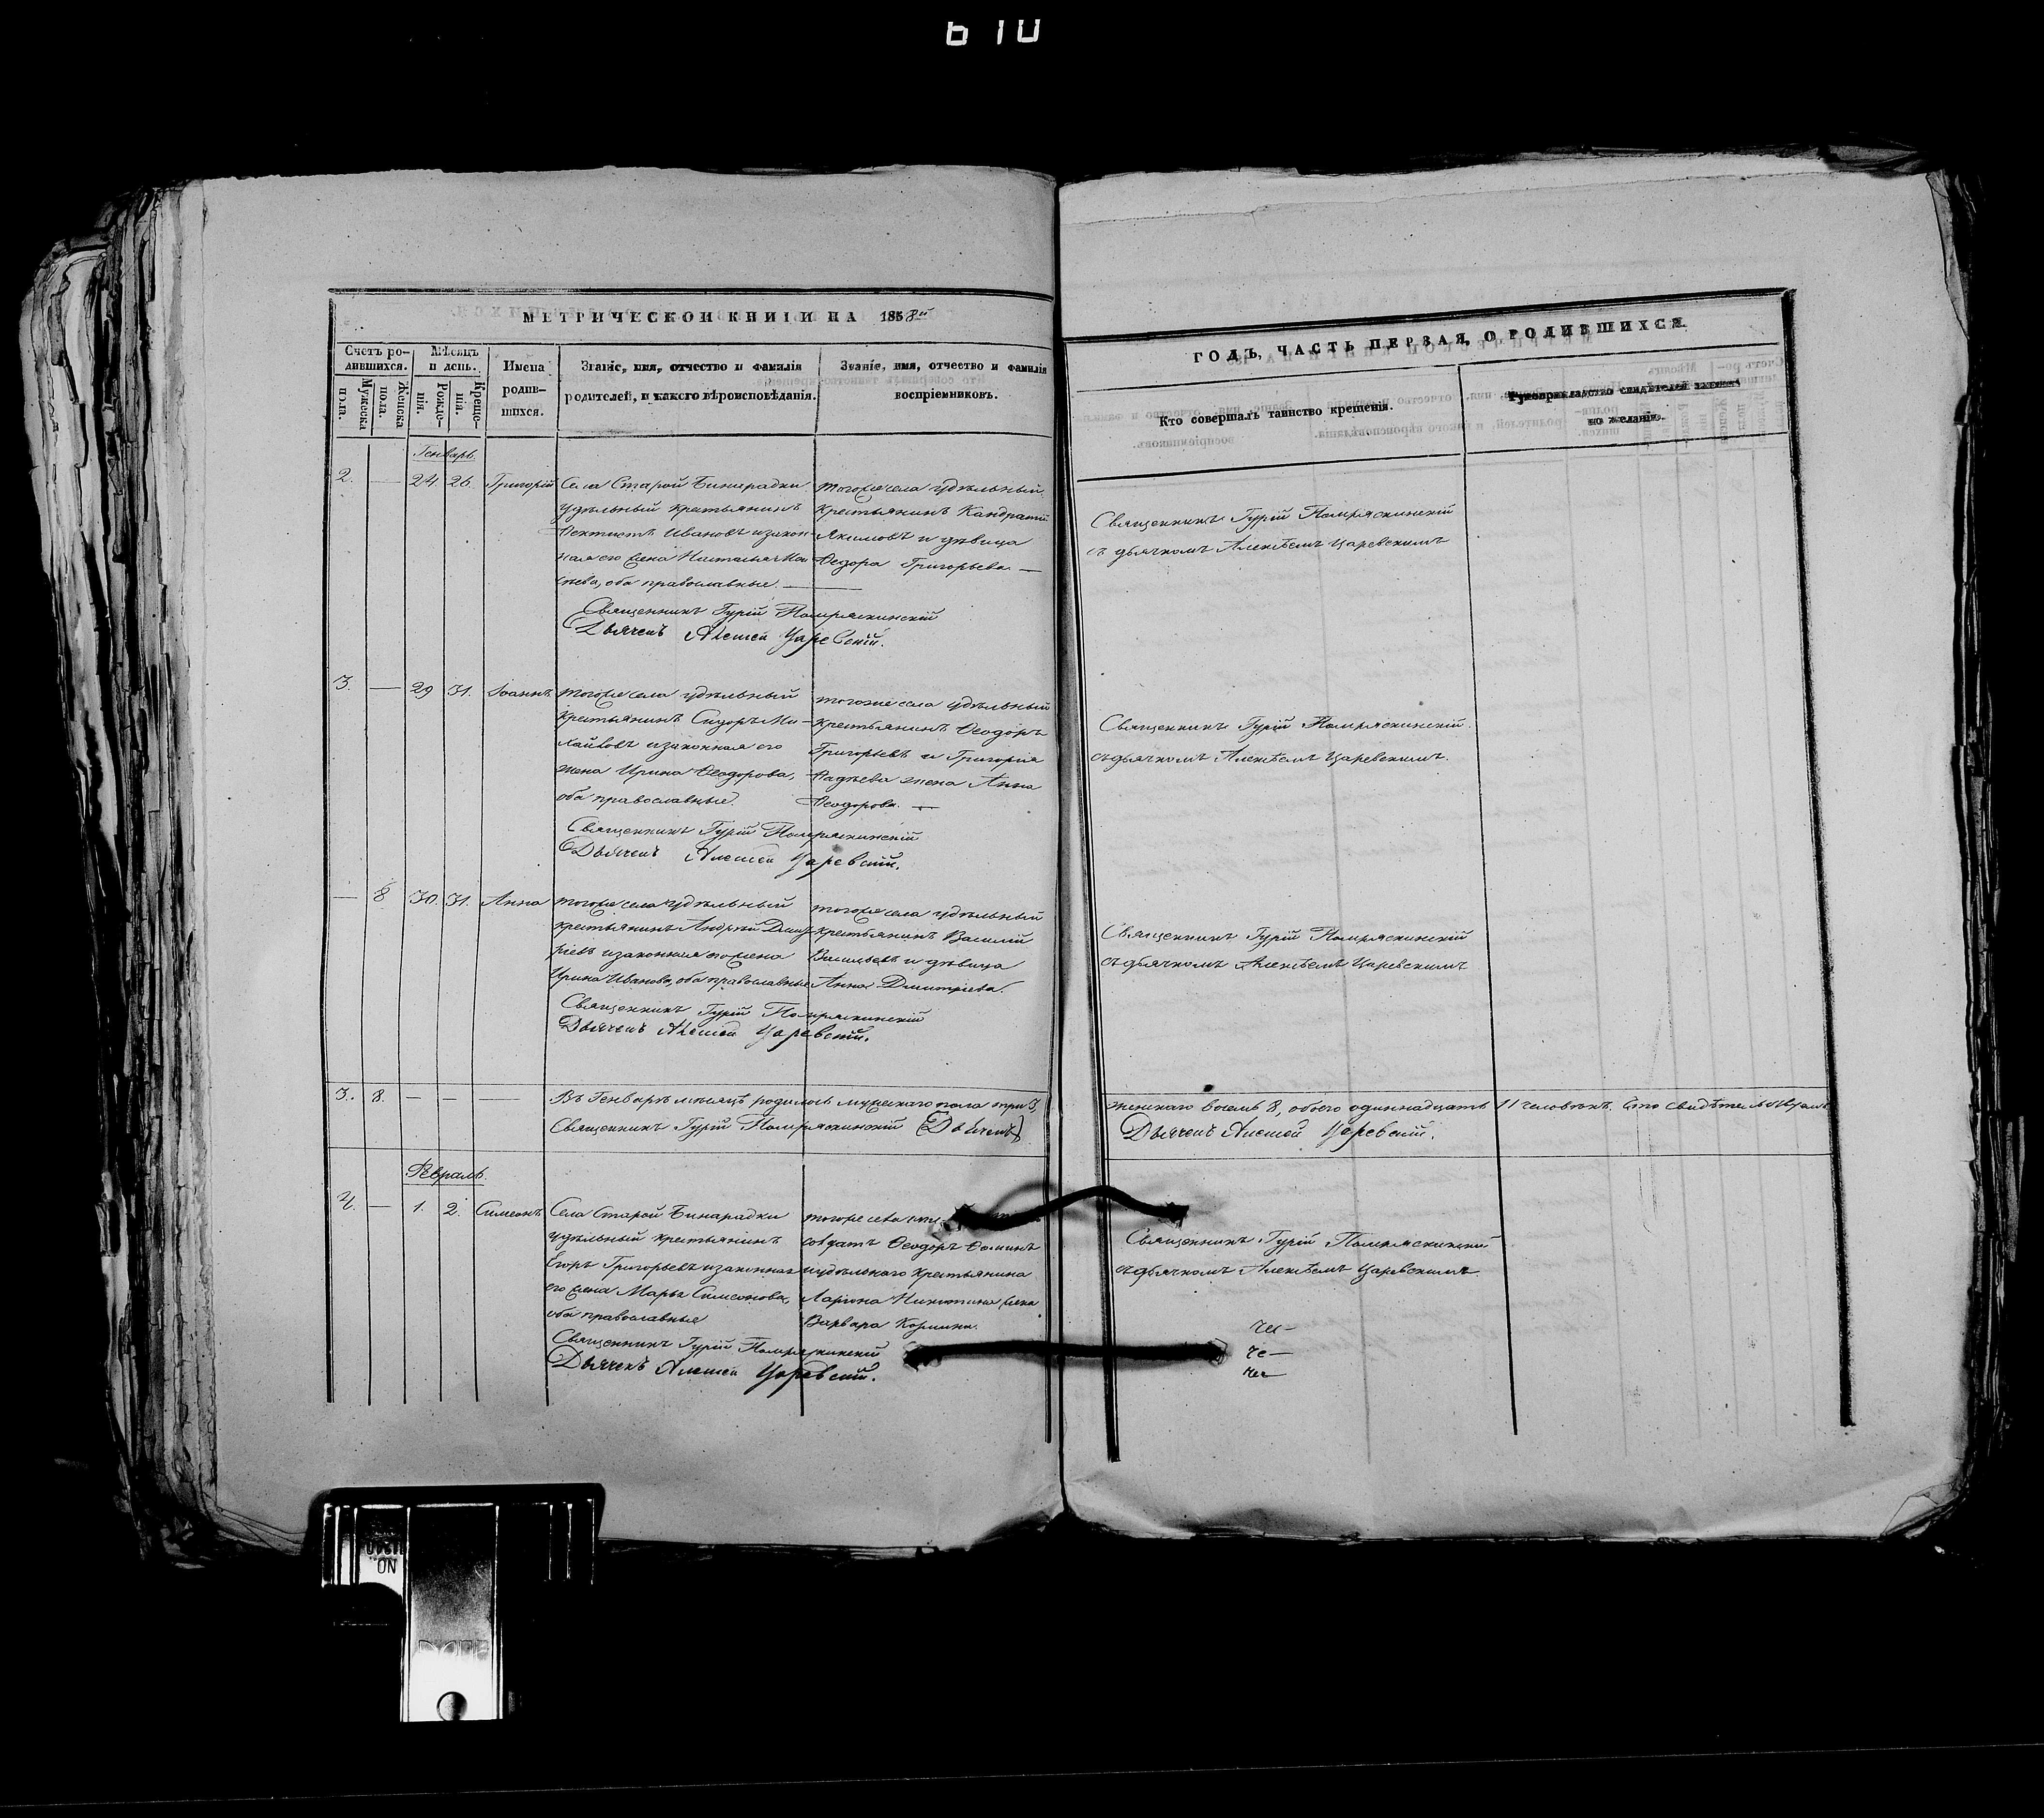 610
МЕТРИЧЕСКОЙ КНИГИ НА 1858й
Счетъ родившихся.
Мужеска пола.
Женска пола.
Мѣсяцъ и день.
Рожденія.
Крещенія.
Имена родившихся.
Званіе, имя, отчество и фамилія родителей, и какого вѣроисповѣданія.
Званіе, имя, отчество и фамилія воспріемниковъ.
Генварь.
2. — 24. 26. Григорій
Села Старой Бинарадки
удѣльный крестьянинъ
Фектистъ Ивановъ и закон-
ная его жена Наталья
оба православные. —
тогоже села удѣльный
крестьянинъ Кандратій
Якимовъ и дѣвица
Федора Григорьева. —
Священникъ Гурій Помряскинскій
Дьячекъ Алексей Царевскій.
3. — 29 31. Іоаннъ
тогоже села удѣльный
крестьянинъ Сидоръ Ми-
хайловъ и законная его
жена Ирина Феодорова,
оба православные.
тогоже села удѣльный
крестьянинъ Феодоръ
Григорьевъ и Григорія
Фадѣева жена Анна
Феодорова. —
Священникъ Гурій Помряскинскій
Дьячекъ Алексей Царевскій.
— 8 30. 31. Анна
тогоже села удѣльный
крестьянинъ Андрей Дмит-
ріевъ и законная его жена
Ирина Иванова, оба православные
тогоже села удѣльный
крестьянинъ Василій
Васильевъ и дѣвица
Анна Дмитріева.
Священникъ Гурій Помряскинскій
Дьячекъ Алексей Царевскій.
3. 8. — — —
Въ Генварѣ мѣсяцѣ родилось мужескаго пола три 3,
Священникъ Гурій Помряскинскій (Дьячекъ)
Февраль.
4. — 1. 2. Симеонъ
Села Старой Бинарадки
удѣльный крестьянинъ
Егоръ Григорьевъ и законная
его жена Марья Симеонова,
оба православные
тогоже села
солдатъ Феодоръ Фоминъ
и удѣльнаго крестьянина
Ларіона Никитина жена
Варвара Козмина.
Священникъ Гурій Помряскинскій
Дьячекъ Алексей Царевскій.
ГОДЪ, ЧАСТЬ ПЕРВАЯ, О РОДИВШИХСЯ.
Кто совершалъ таинство крещенія.
Рукоприкладство свидѣтелей записи по желанію.
Священникъ Гурій Помряскинскій
съ дьячкомъ Алексѣемъ Царевскимъ
Священникъ Гурій Помряскинскій.
съ дьячкомъ Алексѣемъ Царевскимъ.
Священникъ Гурій Помряскинскій
съ дьячкомъ Алексѣемъ Царевскимъ
женскаго восемь 8, обоего одиннадцать 11 человѣкъ. Въ томъ свидѣтельствуемъ
Дьячекъ Алексей Царевскій.
Священникъ Гурій Помряскинскій
съ дьячкомъ Алексѣемъ Царевскимъ.